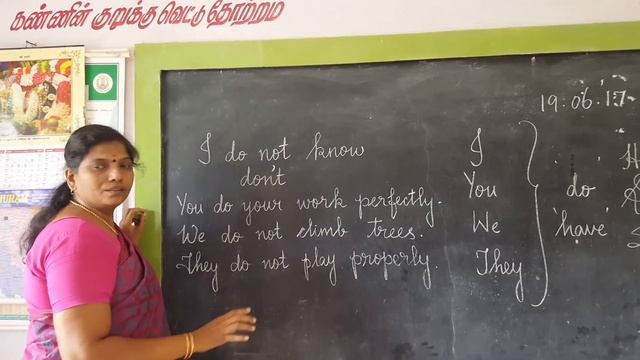 கண்ணின் குறுக்கு வெட்டு தோற்றம்
19.06.17
I do not know
don't
You do your work perfectly.
We do not climb trees.
They do not play properly.
I
You
We
They
do
'have'